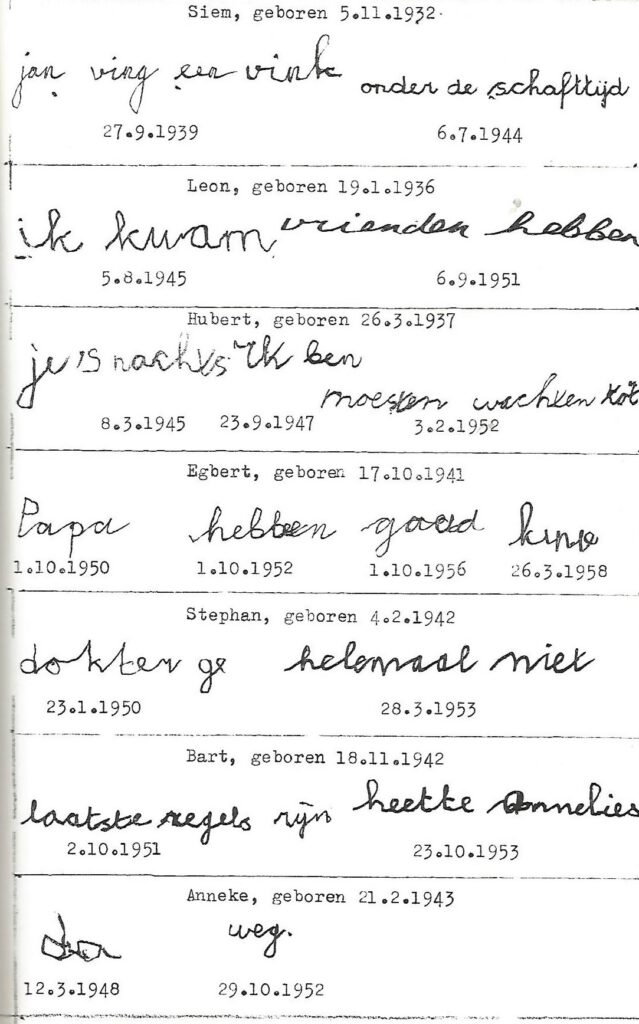 Siem, geboren 5.11.1932.
jan ving een vink onder de schafttijd
27.9.1939 6.7.1944
Leon, geboren 19.1.1936
ik kwam vrienden hebben
5.8.1945 6.9.1951
Hubert, geboren 26.3.1937
je 's nachts Ik ben
moesten wachten tot
8.3.1945 23.9.1947 3.2.1952
Egbert, geboren 17.10.1941
Papa hebben goed
1.10.1950 1.10.1952 1.10.1956 26.3.1958
Stephan, geboren 4.2.1942
dokter ge helemaal niet
23.1.1950 28.3.1953
Bart, geboren 18.11.1942
laatste regels zijn heette Annelies
2.10.1951 23.10.1953
Anneke, geboren 21.2.1943
weg.
12.3.1948 29.10.1952